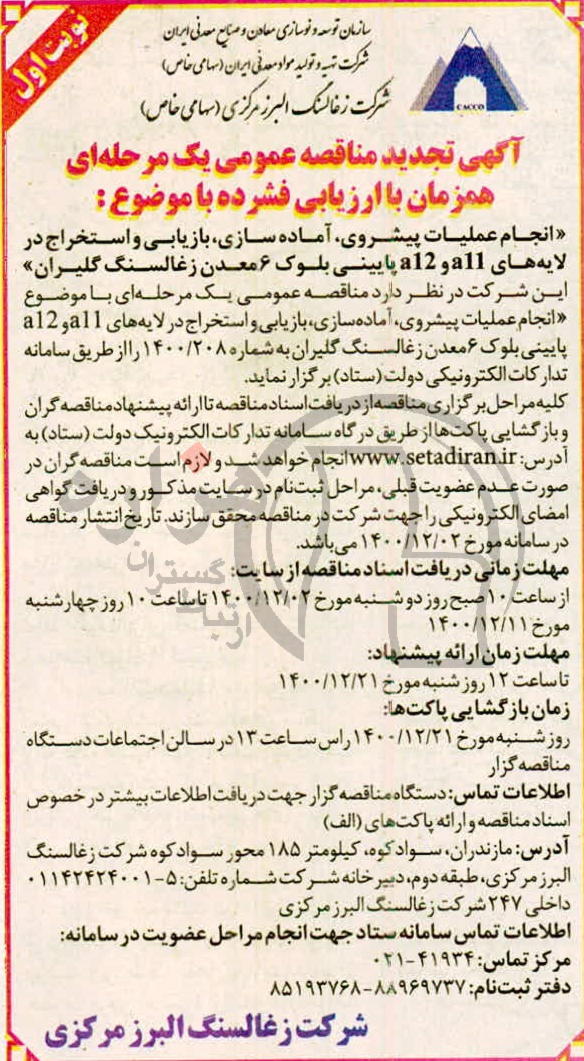 نوبت اول
سازمان توسعه و نوسازی معادن و صنایع معدنی ایران
شرکت تهیه و تولید مواد معدنی ایران (سهامی خاص)
شرکت زغالسنگ البرز مرکزی (سهامی خاص)
CACCO
آگهی تجدید مناقصه عمومی یک مرحله‌ای
همزمان با ارزیابی فشرده با موضوع :
«انجام عملیات پیشروی، آماده سازی، بازیابی و استخراج در
لایه‌های a11 و a12 پایینی بلوک ۶ معدن زغالسنگ گلیران»
این شرکت در نظر دارد مناقصه عمومی یک مرحله‌ای با موضوع
«انجام عملیات پیشروی، آماده‌سازی، بازیابی و استخراج در لایه‌های a11 و a12
پایینی بلوک ۶ معدن زغالسنگ گلیران به شماره ۱۴۰۰/۲۰۸ را از طریق سامانه
تدارکات الکترونیکی دولت (ستاد) برگزار نماید.
کلیه مراحل برگزاری مناقصه از دریافت اسناد مناقصه تا ارائه پیشنهاد مناقصه گران
و بازگشایی پاکت‌ها از طریق درگاه سامانه تدارکات الکترونیک دولت (ستاد) به
آدرس: www.setadiran.ir انجام خواهد شد و لازم است مناقصه گران در
صورت عدم عضویت قبلی، مراحل ثبت‌نام در سایت مذکور و دریافت گواهی
امضای الکترونیکی را جهت شرکت در مناقصه محقق سازند. تاریخ انتشار مناقصه
در سامانه مورخ ۱۴۰۰/۱۲/۰۲ می‌باشد.
مهلت زمانی دریافت اسناد مناقصه از سایت:
از ساعت ۱۰ صبح روز دو شنبه مورخ ۱۴۰۰/۱۲/۰۲ تا ساعت ۱۰ روز چهارشنبه
مورخ ۱۴۰۰/۱۲/۱۱
مهلت زمان ارائه پیشنهاد:
تا ساعت ۱۲ روز شنبه مورخ ۱۴۰۰/۱۲/۲۱
زمان بازگشایی پاکت‌ها:
روز شنبه مورخ ۱۴۰۰/۱۲/۲۱ راس ساعت ۱۳ در سالن اجتماعات دستگاه
مناقصه گزار
اطلاعات تماس: دستگاه مناقصه گزار جهت دریافت اطلاعات بیشتر در خصوص
اسناد مناقصه و ارائه پاکت‌های (الف)
آدرس: مازندران، سوادکوه، کیلومتر ۱۸۵ محور سوادکوه شرکت زغالسنگ
البرز مرکزی، طبقه دوم، دبیرخانه شرکت شماره تلفن: ۵-۰۱۱۴۲۴۲۴۰۰۱
داخلی ۲۴۷ شرکت زغالسنگ البرز مرکزی
اطلاعات تماس سامانه ستاد جهت انجام مراحل عضویت در سامانه:
مرکز تماس: ۴۱۹۳۴-۰۲۱
دفتر ثبت‌نام: ۸۸۹۶۹۷۳۷-۸۵۱۹۳۷۶۸
شرکت زغالسنگ البرز مرکزی
هزاره
گستران
ارتباط